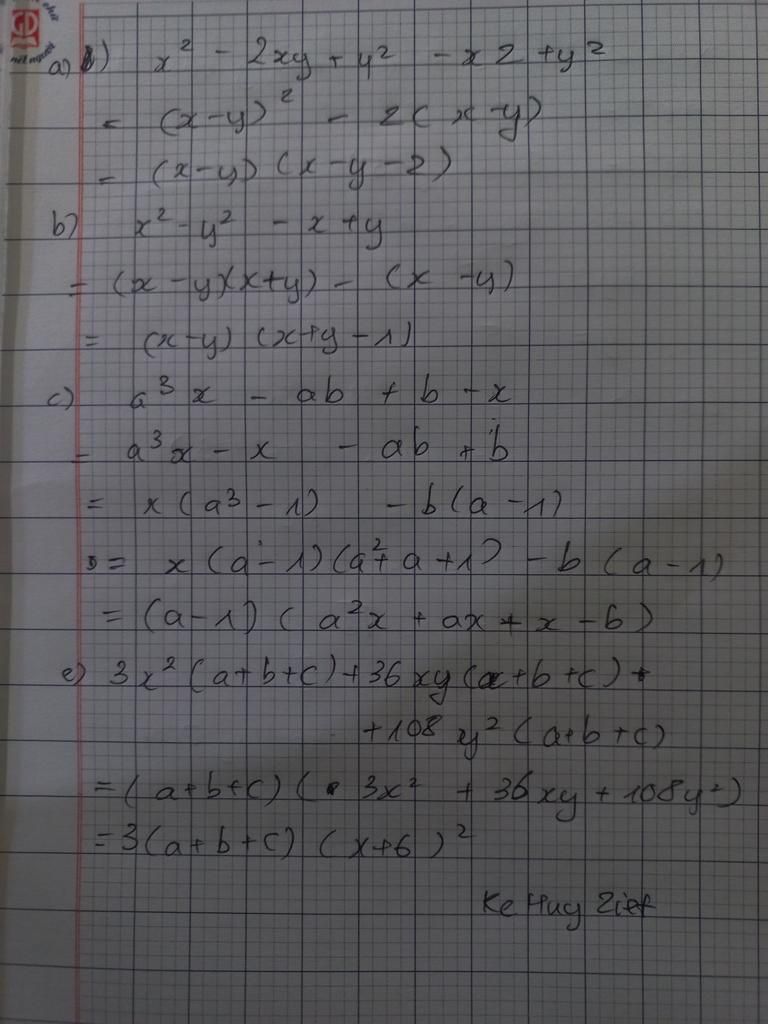 a) 1) x² - 2xy + y² - xz + yz
= (x-y)² - z(x-y)
= (x-y)(x-y-z)
b) x² - y² - x + y
= (x-y)(x+y) - (x-y)
= (x-y)(x+y-1)
c) a³x - ab + b - x
= a³x - x - ab + b
= x(a³-1) - b(a-1)
= x(a-1)(a²+a+1) - b(a-1)
= (a-1)(a²x + ax + x - b)
e) 3x²(a+b+c) + 36xy(a+b+c) +
+108y²(a+b+c)
= (a+b+c)(3x² + 36xy + 108y²)
= 3(a+b+c)(x+6)²